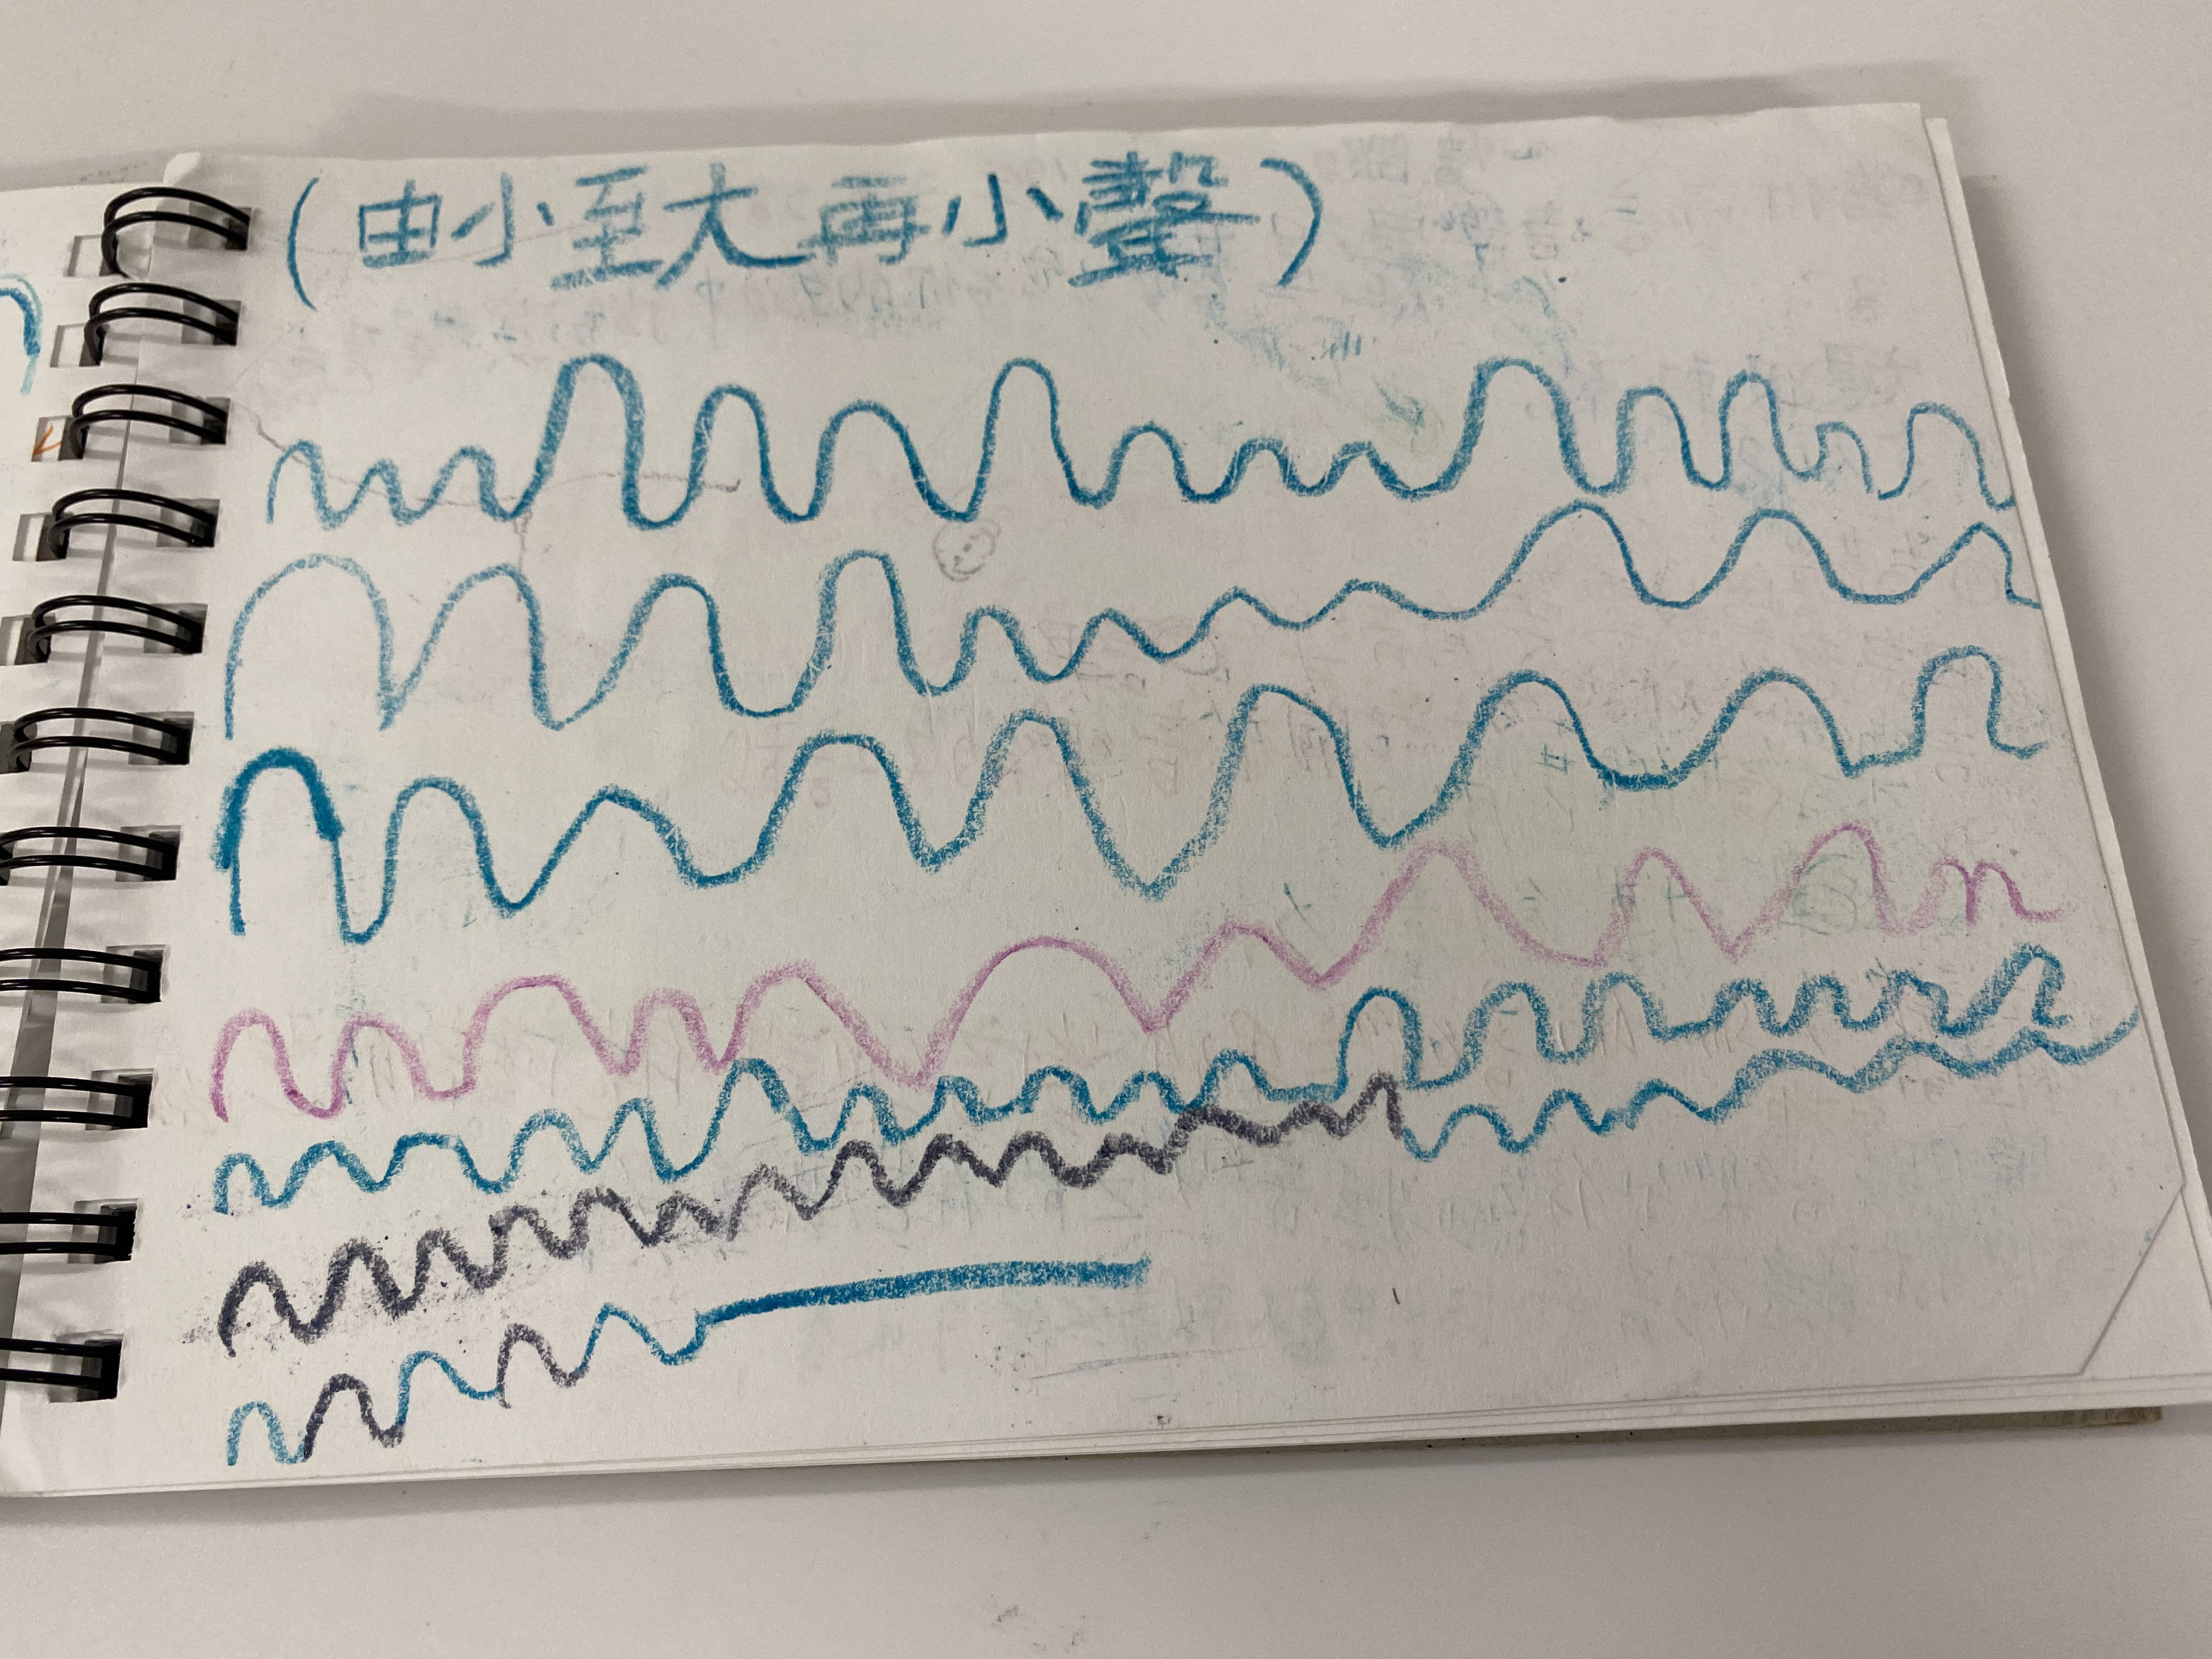 (由小至大再小聲)